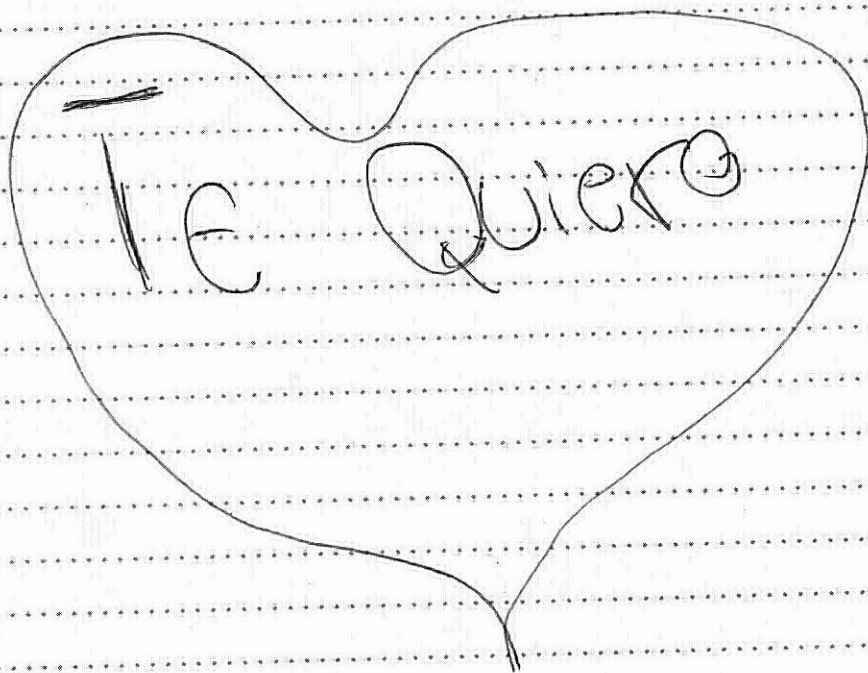 Te Quiero